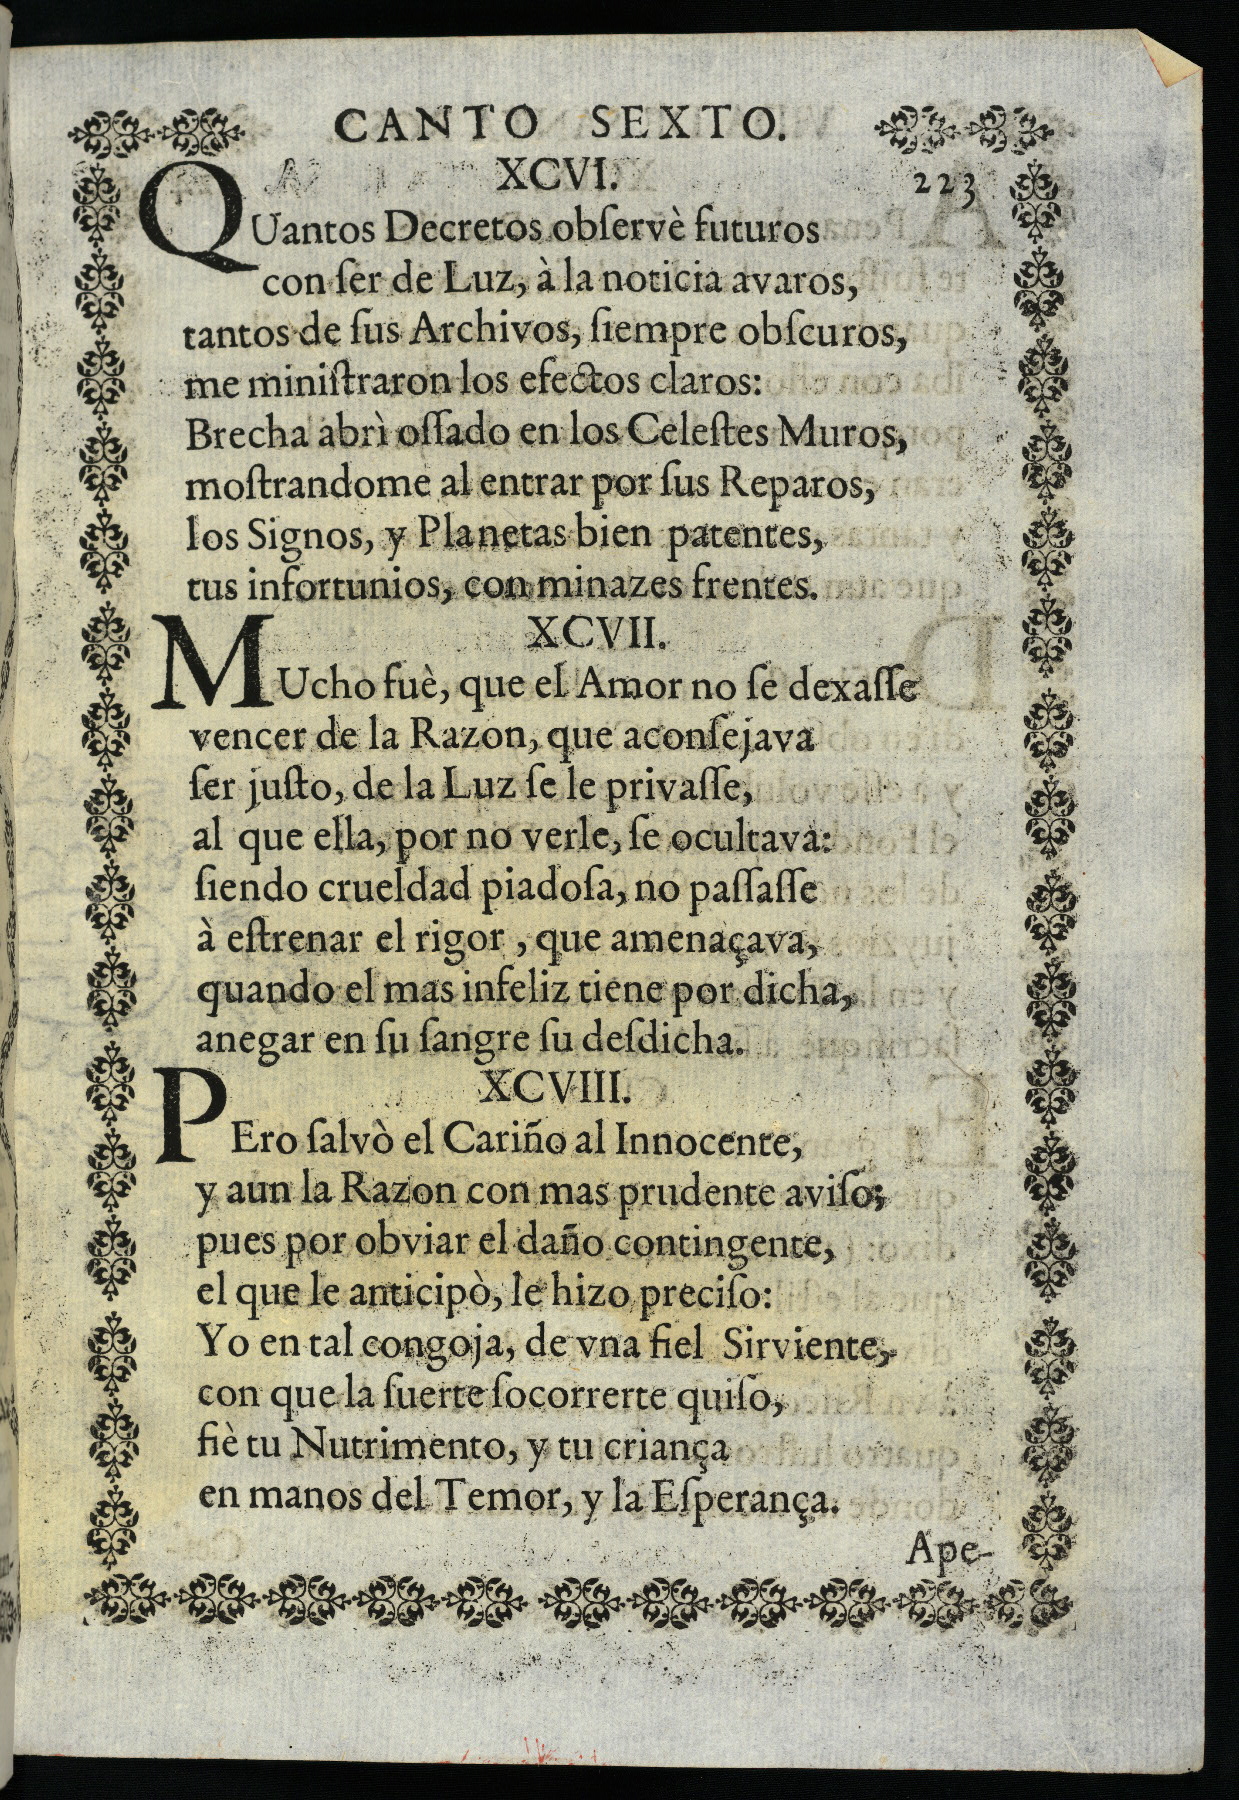 CANTO SEXTO.
XCVI.
223
QUantos Decretos obſervè futuros
con ſer de Luz, à la noticia avaros,
tantos de ſus Archivos, ſiempre obſcuros,
me miniſtraron los efectos claros:
Brecha abrì oſſado en los Celeſtes Muros,
moſtrandome al entrar por ſus Reparos,
los Signos, y Planetas bien patentes,
tus infortunios, con minazes frentes.
XCVII.
MUcho fuè, que el Amor no ſe dexaſſe
vencer de la Razon, que aconſejava
ſer juſto, de la Luz ſe le privaſſe,
al que ella, por no verle, ſe ocultava:
ſiendo crueldad piadoſa, no paſſaſſe
à eſtrenar el rigor, que amenaçava,
quando el mas infeliz tiene por dicha,
anegar en ſu ſangre ſu deſdicha.
XCVIII.
PEro ſalvò el Cariño al Innocente,
y aun la Razon con mas prudente aviſo;
pues por obviar el daño contingente,
el que le anticipò, le hizo preciſo:
Yo en tal congoja, de vna fiel Sirviente,
con que la ſuerte ſocorrerte quiſo,
fiè tu Nutrimento, y tu criança
en manos del Temor, y la Eſperança.
Ape-